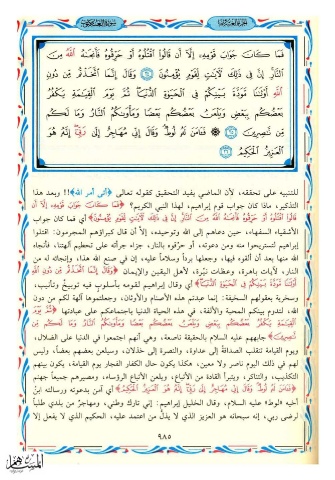 الجزء العشرون
سورة العنكبوت
فَمَا كَانَ جَوَابَ قَوْمِهِ إِلَّا أَن قَالُوا اقْتُلُوهُ أَوْ حَرِّقُوهُ فَأَنجَاهُ اللَّهُ مِنَ
النَّارِ إِنَّ فِي ذَلِكَ لَآيَاتٍ لِّقَوْمٍ يُؤْمِنُونَ ۝ وَقَالَ إِنَّمَا اتَّخَذْتُم مِّن دُونِ
اللَّهِ أَوْثَانًا مَّوَدَّةَ بَيْنِكُمْ فِي الْحَيَاةِ الدُّنْيَا ثُمَّ يَوْمَ الْقِيَامَةِ يَكْفُرُ
بَعْضُكُم بِبَعْضٍ وَيَلْعَنُ بَعْضُكُم بَعْضًا وَمَأْوَاكُمُ النَّارُ وَمَا لَكُم
مِّن نَّاصِرِينَ ۝ فَآمَنَ لَهُ لُوطٌ وَقَالَ إِنِّي مُهَاجِرٌ إِلَى رَبِّي إِنَّهُ هُوَ
الْعَزِيزُ الْحَكِيمُ ۝
للتنبيه على تحققه، لأن الماضي يفيد التحقيق كقوله تعالى ﴿أتى أمر الله﴾!! وبعد هذا
التذكير، ماذا كان جواب قوم إبراهيم، لهذا النبي الكريم؟ ﴿فَمَا كَانَ جَوَابَ قَوْمِهِ إِلَّا أَن
قَالُوا اقْتُلُوهُ أَوْ حَرِّقُوهُ فَأَنجَاهُ اللَّهُ مِنَ النَّارِ إِنَّ فِي ذَلِكَ لَآيَاتٍ لِّقَوْمٍ يُؤْمِنُونَ﴾ أي فما كان جواب
الأشقياء السفهاء، حين دعاهم إلى الله وتوحيده، إلا أن قال كبراؤهم المجرمون: اقتلوا
إبراهيم لتستريحوا منه ومن دعوته، أو حرّقوه بالنار، جزاء جرأته على تحطيم آلهتنا، فأنجاه
الله منها بعد أن ألقوه فيها، وجعلها برداً وسلاماً عليه، إن في صنع الله هذا، وإنجائه له من
النار، لآيات باهرة، وعظات نيّرة، لأهل اليقين والإيمان ﴿وَقَالَ إِنَّمَا اتَّخَذْتُم مِّن دُونِ اللَّهِ
أَوْثَانًا مَّوَدَّةَ بَيْنِكُمْ فِي الْحَيَاةِ الدُّنْيَا﴾ أي وقال إبراهيم لقومه بأسلوب فيه توبيخ وتأنيب،
وسخرية بعقولهم السخيفة: إنما عبدتم هذه الأصنام والأوثان، وجعلتموها آلهة لكم من دون
الله، لتدوم بينكم المحبة والألفة، في هذه الحياة الدنيا باجتماعكم على عبادتها ﴿ثُمَّ يَوْمَ
الْقِيَامَةِ يَكْفُرُ بَعْضُكُم بِبَعْضٍ وَيَلْعَنُ بَعْضُكُم بَعْضًا وَمَأْوَاكُمُ النَّارُ وَمَا لَكُم مِّن
نَّاصِرِينَ﴾ جابههم عليه السلام بالحقيقة ناصعة، وهي أنهم اجتمعوا في الدنيا على الضلال،
ويوم القيامة تنقلب الصداقة إلى عداوة، والنصرة إلى خذلان، وسيلعن بعضهم بعضاً، وليس
لهم في ذلك اليوم ناصر ولا معين، هكذا يكون حال الكفار الفجار يوم القيامة، يكون بينهم
التكذيب، والتناكر، ويتبرأ القادة من الأتباع، ويلعن الأتباع الرؤساء، ومصيرهم جميعاً جهنم
﴿فَآمَنَ لَهُ لُوطٌ وَقَالَ إِنِّي مُهَاجِرٌ إِلَى رَبِّي إِنَّهُ هُوَ الْعَزِيزُ الْحَكِيمُ﴾ أي آمن بدعوته ورسالته ابنُ
أخيه «لوط» عليه السلام، وقال الخليل إبراهيم: إني تارك وطني، ومهاجرٌ من بلدي طلباً
لرضى ربي، إنه سبحانه هو العزيز الذي لا يذلّ من اعتمد عليه، الحكيم الذي لا يفعل إلا
٩٨٥